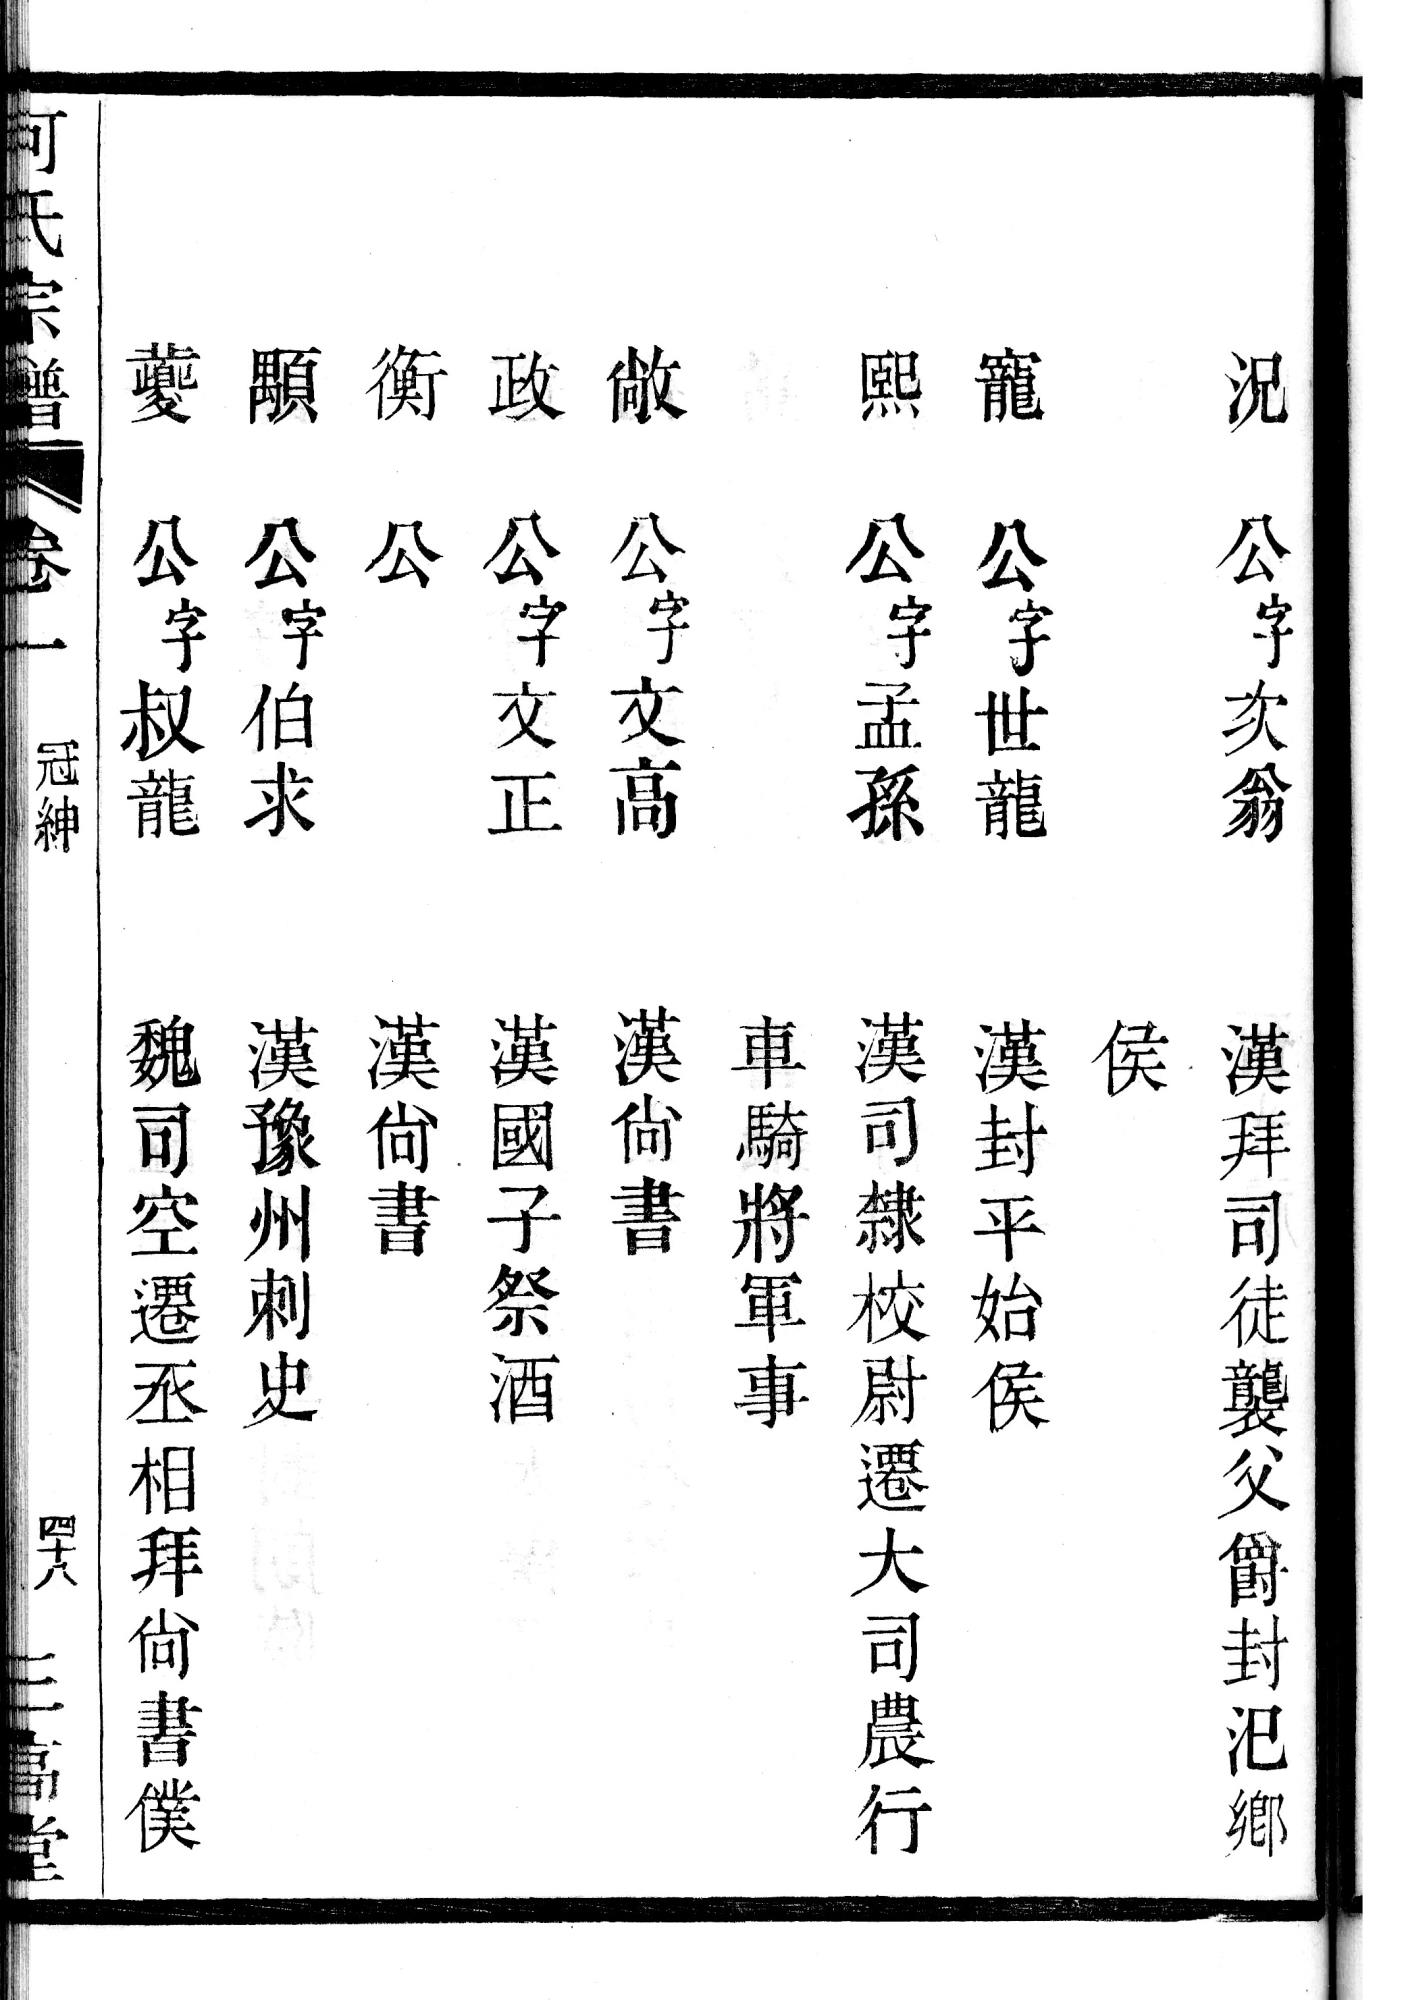 况 公字次翁 漢拜司徒襲父爵封汜鄉
侯
寵 公字世龍 漢封平始侯
熙 公字孟孫 漢司隸校尉遷大司農行
車騎將軍事
敞 公字文高 漢尙書
政 公字文正 漢國子祭酒
衡 公 漢尙書
顒 公字伯求 漢豫州刺史
夔 公字叔龍 魏司空遷丞相拜尙書僕
何氏宗譜 卷一 冠紳 四十八 三高堂